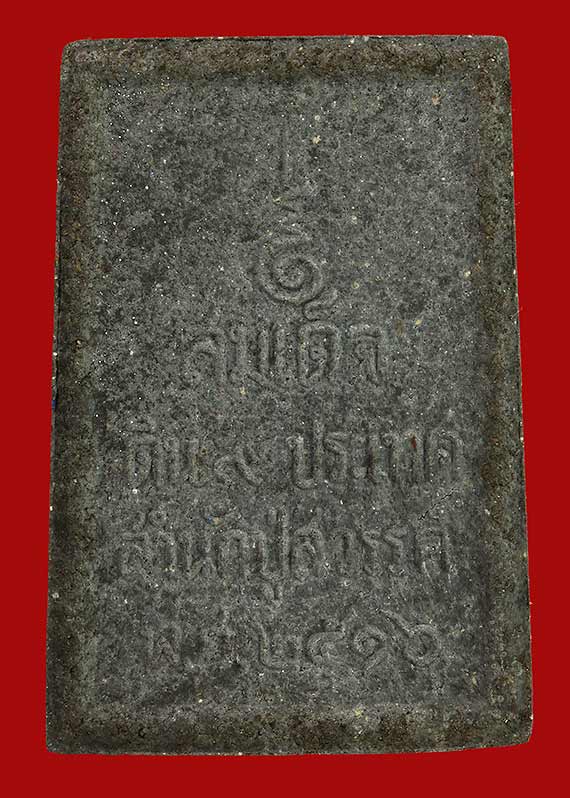 สมเด็จ
ดิน ๙ ประเทศ
สำนักปู่สวรรค์
พ.ศ. ๒๕๑๖